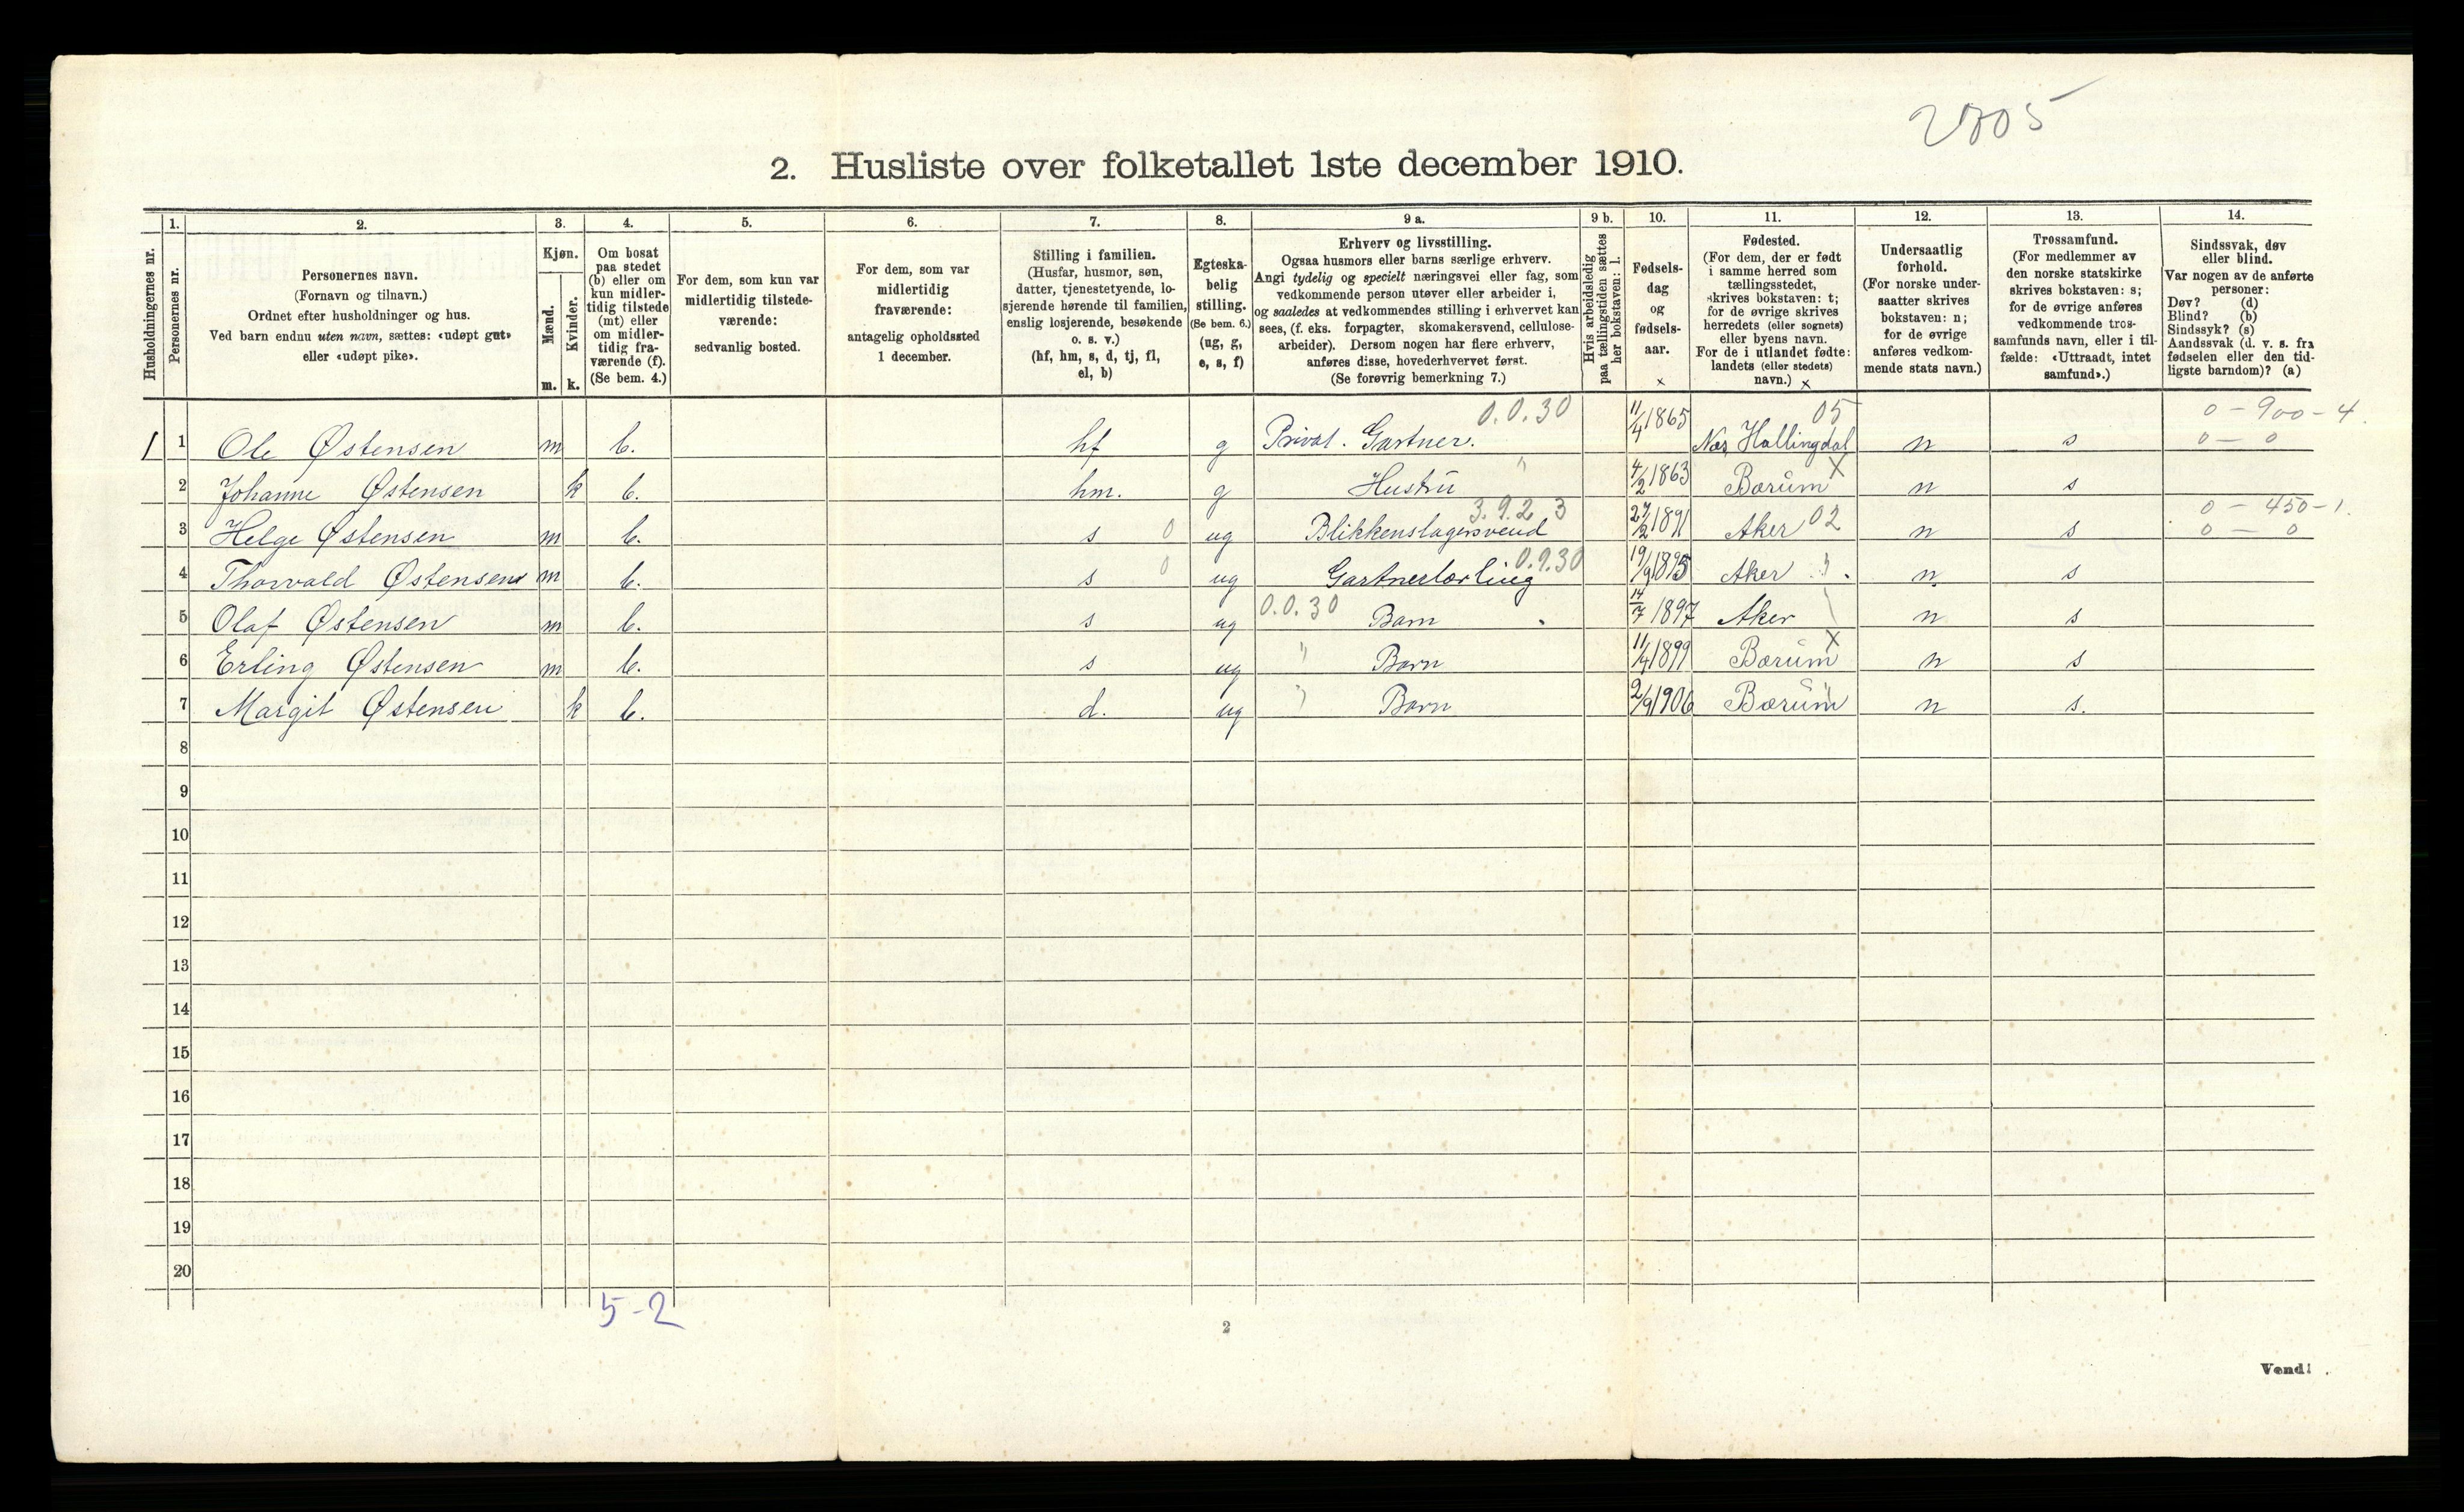 2805
2. Husliste over folketallet 1ste december 1910.
1. 2. 3. 4. 5. 6. 7. 8. 9 a. 9 b. 10. 11. 12. 13. 14.
Husholdningernes nr.
Personernes nr.
Personernes navn.
(Fornavn og tilnavn.)
Ordnet efter husholdninger og hus.
Ved barn endnu uten navn, sættes: «udøpt gut»
eller «udøpt pike».
Kjøn.
Mænd.
Kvinder.
m. k.
Om bosat
paa stedet
(b) eller om
kun midler-
tidig tilstede
(mt) eller
om midler-
tidig fra-
værende (f).
(Se bem. 4.)
For dem, som kun var
midlertidig tilstede-
værende:
sedvanlig bosted.
For dem, som var
midlertidig
fraværende:
antagelig opholdssted
1 december.
Stilling i familien.
(Husfar, husmor, søn,
datter, tjenestetyende, lo-
sjerende hørende til familien,
enslig losjerende, besøkende
o. s. v.)
(hf, hm, s, d, tj, fl,
el, b)
Egteska-
belig
stilling.
(Se bem. 6.)
(ug, g,
e, s, f)
Erhverv og livsstilling.
Ogsaa husmors eller barns særlige erhverv.
Angi tydelig og specielt næringsvei eller fag, som
vedkommende person utøver eller arbeider i,
og saaledes at vedkommendes stilling i erhvervet kan
sees, (f. eks. forpagter, skomakersvend, cellulose-
arbeider). Dersom nogen har flere erhverv,
anføres disse, hovederhvervet først.
(Se forøvrig bemerkning 7.)
Hvis arbeidsledig
paa tællingstiden sættes
her bokstaven: l.
Fødsels-
dag
og
fødsels-
aar.
x
Fødested.
(For dem, der er født
i samme herred som
tællingsstedet,
skrives bokstaven: t;
for de øvrige skrives
herredets (eller sognets)
eller byens navn.
For de i utlandet fødte:
landets (eller stedets)
navn.) x
Undersaatlig
forhold.
(For norske under-
saatter skrives
bokstaven: n;
for de øvrige
anføres vedkom-
mende stats navn.)
Trossamfund.
(For medlemmer av
den norske statskirke
skrives bokstaven: s;
for de øvrige anføres
vedkommende tros-
samfunds navn, eller i til-
fælde: «Uttraadt, intet
samfund».)
Sindssvak, døv
eller blind.
Var nogen av de anførte
personer:
Døv? (d)
Blind? (b)
Sindssyk? (s)
Aandssvak (d. v. s. fra
fødselen eller den tid-
ligste barndom)? (a)
0.0.30 05 0 - 900 - 4.
1 1 Ole Østensen m b. hf g Privat. Gartner. 11/4 1865 Nes Hallingdal n s 0 - 0
2 Johanne Østensen k b. hm. g Hustru " 4/2 1863 Bærum X n s
3.9.2 3 0 - 450 - 1.
3 Helge Østensen m b. s 0 ug Blikkenslagersvend 27/2 1891 Aker 02 n s 0 - 0
4 Thorvald Østensen m b. s 0 ug Gartnerlærling 0.9.30 19/9 1895 Aker " n s
5 Olaf Østensen m b. s ug 0.0.30 Barn 14/7 1897 Aker n s
6 Erling Østensen m b. s ug " Barn 11/4 1899 Bærum X n s
7 Margit Østensen k b. d. ug " Barn 2/9 1906 Bærum " n s.
8
9
10
11
12
13
14
15
16
17
18
19
20
5-2
2
Vend!